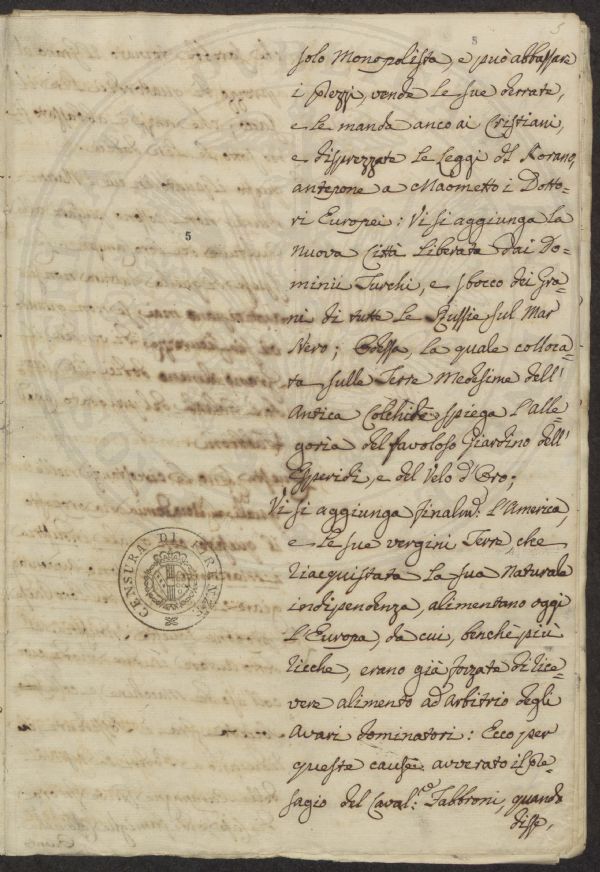 5
8
solo Monopolista, e può abbassare
i prezzi, vende le sue derrate,
e le manda anco ai Cristiani,
e disprezzate le Leggi del Korano,
antepone a Maometto i Dotto-
ri Europei: Vi si aggiunga la
5
nuova Città liberata dai Do-
minii Turchi, e sbocco dei Gra-
ni di tutte le Russie sul Mar
Nero; Odessa, la quale colloca-
ta sulle Terre Medesime dell'
Antica Colchide spiega l'alle-
goria del favoloso Giardino dell'
Esperidi, e del Velo d'Oro;
Vi si aggiunga finalm. L'America,
e le sue vergini Terre che
riacquistata la sua Naturale
indipendenza, alimentano oggi
L'Europa, da cui, benchè più
ricche, erano già forzate di rice-
vere alimento ad arbitrio degli
avari dominatori: Ecco per
queste cause avverato il pre-
sagio del Caval.re Fabbroni, quando
disse,
CENSURA DI FIRENZE